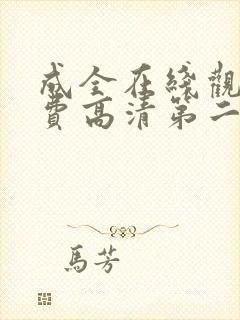 成全在綫觀
費高清第二
馬芳